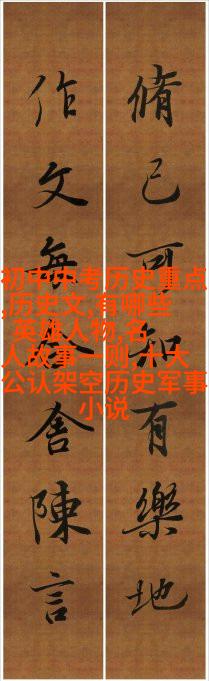 脩己可知有樂地
作文每舍陳言
初中中考历史重点
,历史文,有哪些
英雄人物,名
人故事一则,十大
公认架空历史军事
小说